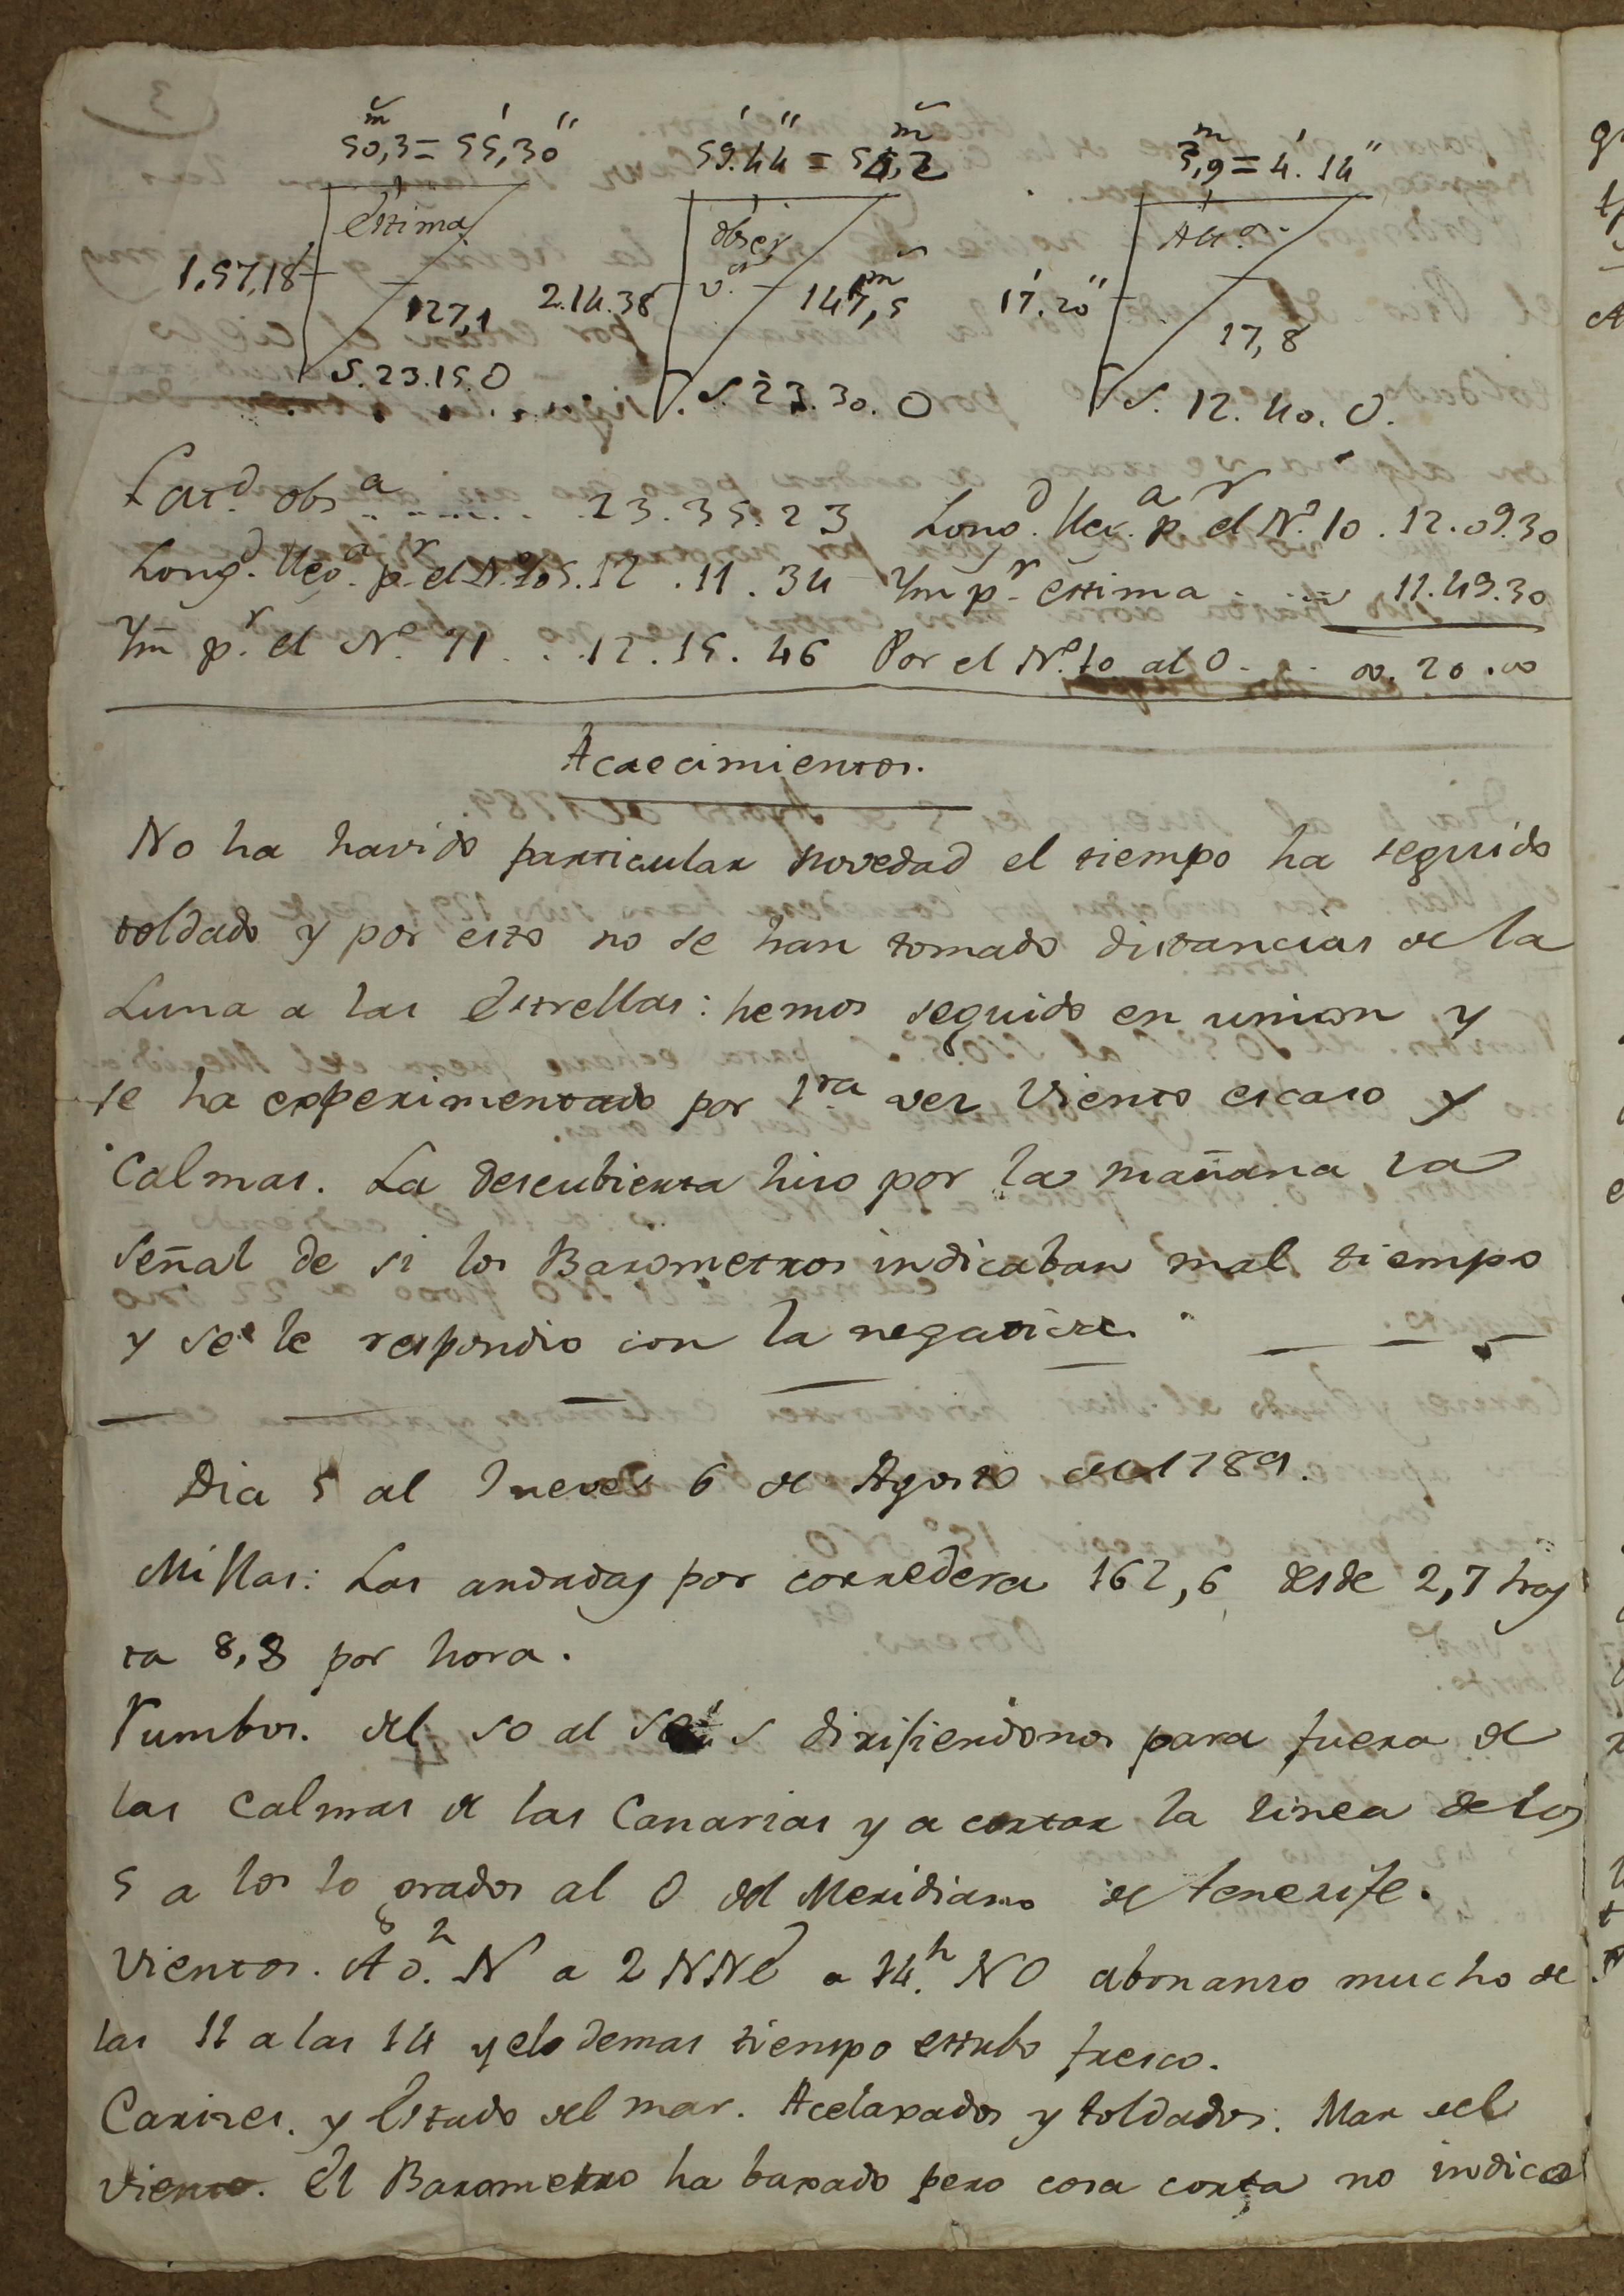 50,3 = 55,30 59.44 = 3,9 = 4.14
Estima obser
1,57,18 127,1 2.14.38 v.on 147,5 17.20 17,8
S.23.15.O S.23.30.O S.12.40.O.
Latd. obsa. 23.35.23 Longd. Llega. pr. el No. 10. 12.09.30
Longd. Llega. pr. el No. 105. 12.11.34 Ym pr. estima 11.49.30
Ym pr. el No. 71 .. 12.15.46 Por el No. 10 al O .. 00.20.00
Acaecimientos.
No ha havido particular novedad el tiempo ha seguido
toldado y por esto no se han tomado distancias de la
Luna a las Estrellas: hemos seguido en union y
se ha experimentado por 1ra vez Viento escaso y
Calmas. La Descubierta hiso por la mañana la
Señal de si los Barometros indicaban mal tiempo
y se le respondio con la negativa.
Dia 5 al Jueves 6 de Agosto de 1789.
Millas: Las andadas por corredera 162,6 desde 2,7 has
ta 8,8 por hora.
Rumbos. del SO al S dirisiendonos para fuera de
las Calmas de las Canarias y a cortar la linea de los
5 a los 10 grados al O del Meridiano de tenerife.
Vientos. A 0.h N a 2 NNE a 14.h NO abonanso mucho de
las 11 a las 14 y elo demas tiempo estubo fresco.
Carises. y Estado del mar. Acelaxados y toldados. Mar del
viento. El Barometro ha baxado pero cosa corta no indica